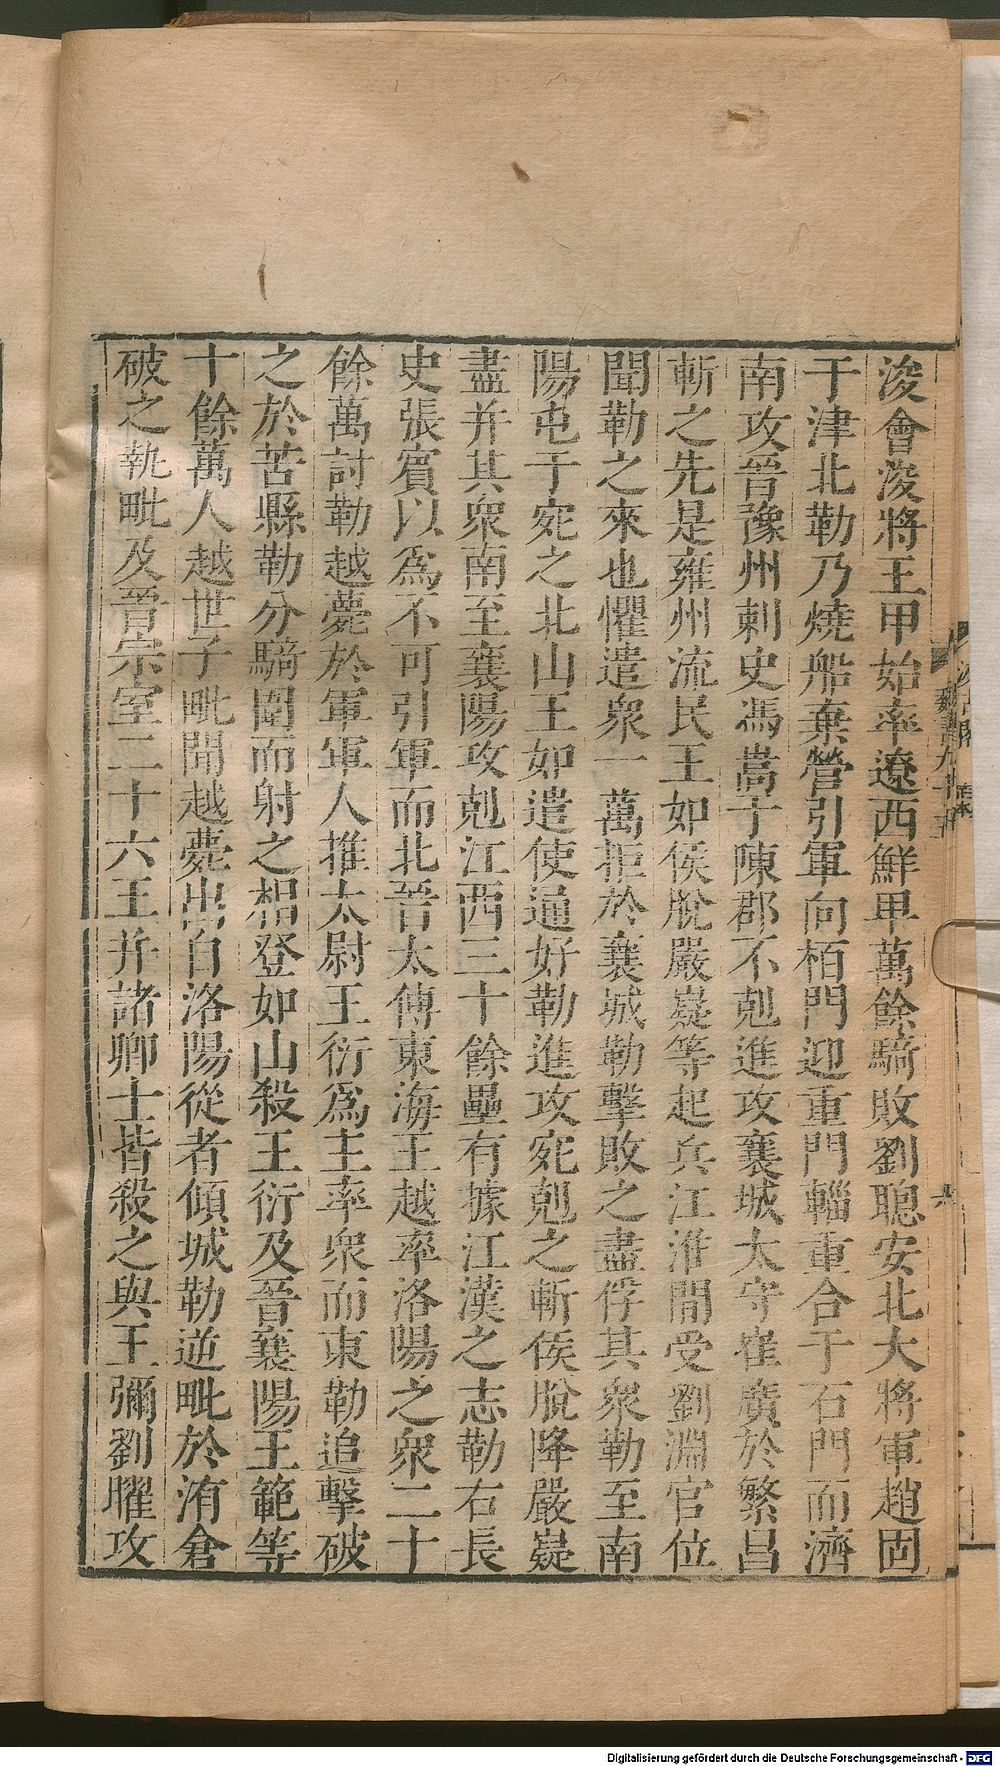 浚會浚將王甲始率遼西鮮卑萬餘騎敗劉聰安北大將軍趙固
于津北勒乃燒船棄營引軍向栢門迎重門輜重合于石門而濟
南攻晉豫州刺史馮嵩于陳郡不剋進攻襄城太守崔廣於繁昌
斬之先是雍州流民王如侯脫嚴嶷等起兵江淮間受劉淵官位
聞勒之來也懼遣衆一萬拒於襄城勒擊敗之盡俘其衆勒至南
陽屯于宛之北山王如遣使通好勒進攻宛剋之斬侯脫降嚴嶷
盡并其衆南至襄陽攻剋江西三十餘壘有據江漢之志勒右長
史張賓以爲不可引軍而北晉太傅東海王越率洛陽之衆二十
餘萬討勒越薨於軍軍人推太尉王衍爲主率衆而東勒追擊破
之於苦縣勒分騎圍而射之相登如山殺王衍及晉襄陽王範等
十餘萬人越世子毗聞越薨出自洛陽從者傾城勒逆毗於洧倉
破之執毗及晉宗室二十六王并諸卿士皆殺之與王彌劉曜攻
魏書九十五
Digitalisierung gefördert durch die Deutsche Forschungsgemeinschaft - DFG